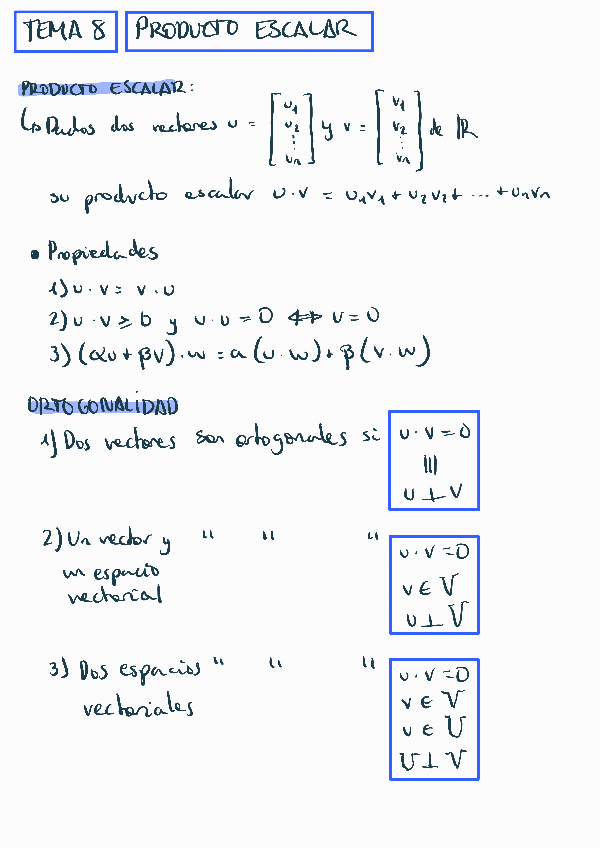 TEMA 8 PRODUCTO ESCALAR
PRODUCTO ESCALAR:
↳ Dados dos vectores u = [u1 u2 ⋮ un] y v = [v1 v2 ⋮ vn] de ℝ
su producto escalar u·v = u1v1 + u2v2 + ... + unvn
• Propiedades
1) u·v = v·u
2) u·v ≥ 0 y u·u = 0 ⟺ u = 0
3) (αu + βv)·w = α(u·w) + β(v·w)
ORTOGONALIDAD
1) Dos vectores son ortogonales si u·v = 0
|||
u ⊥ v
2) Un vector y " " " u·v = 0
un espacio v ∈ V
vectorial u ⊥ V
3) Dos espacios " " " u·v = 0
vectoriales v ∈ V
u ∈ U
U ⊥ V